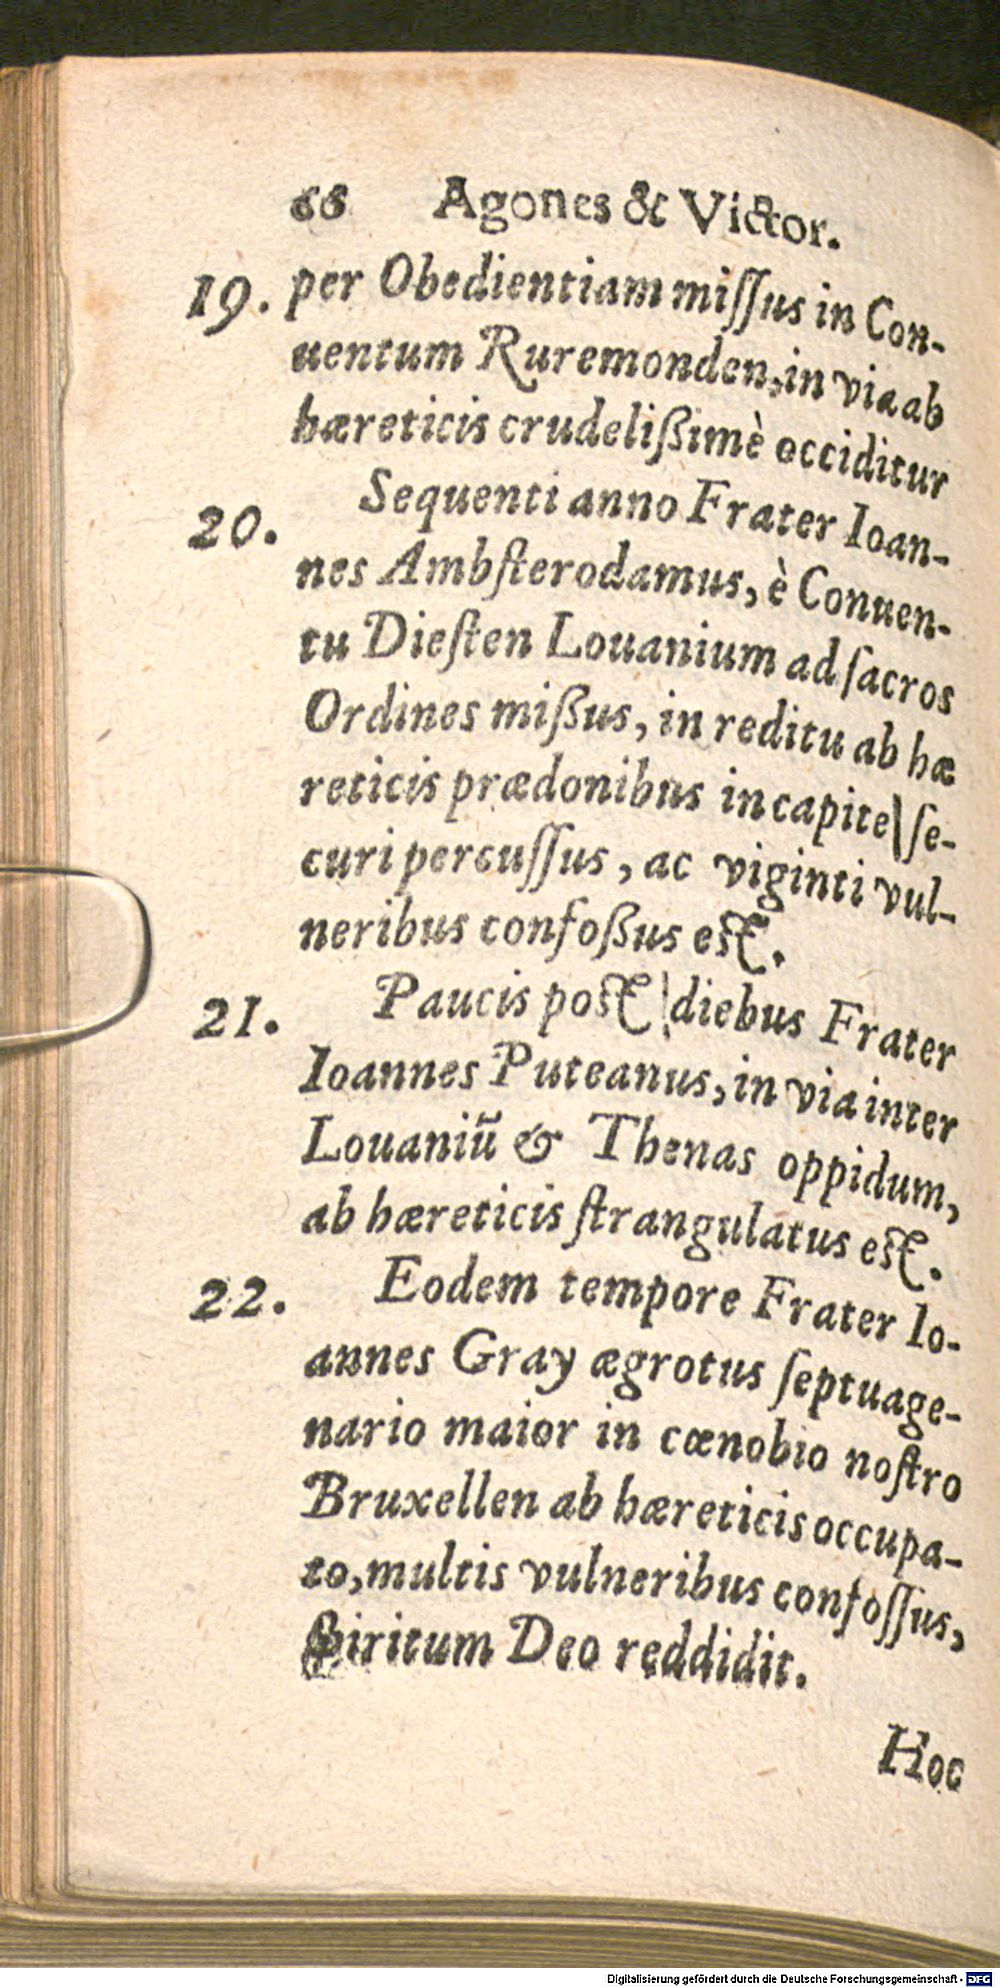 66 Agones & Victor.
19. per Obedientiam miſſus in Con-
uentum Ruremonden, in via ab
hæreticis crudelißimè occiditur
20. Sequenti anno Frater Ioan-
nes Ambſterodamus, è Conuen-
tu Dieſten Louanium ad ſacros
Ordines mißus, in reditu ab hæ
reticis prædonibus in capite ſe-
curi percuſſus, ac viginti vul-
neribus confoßus eſt.
21. Paucis poſt diebus Frater
Ioannes Puteanus, in via inter
Louaniū & Thenas oppidum,
ab hæreticis ſtrangulatus eſt.
22. Eodem tempore Frater Io-
annes Gray ægrotus ſeptuage-
nario maior in cœnobio noſtro
Bruxellen ab hæreticis occupa-
to, multis vulneribus confoſſus,
ſpiritum Deo reddidit.
Hoc
Digitalisierung gefördert durch die Deutsche Forschungsgemeinschaft - DFG